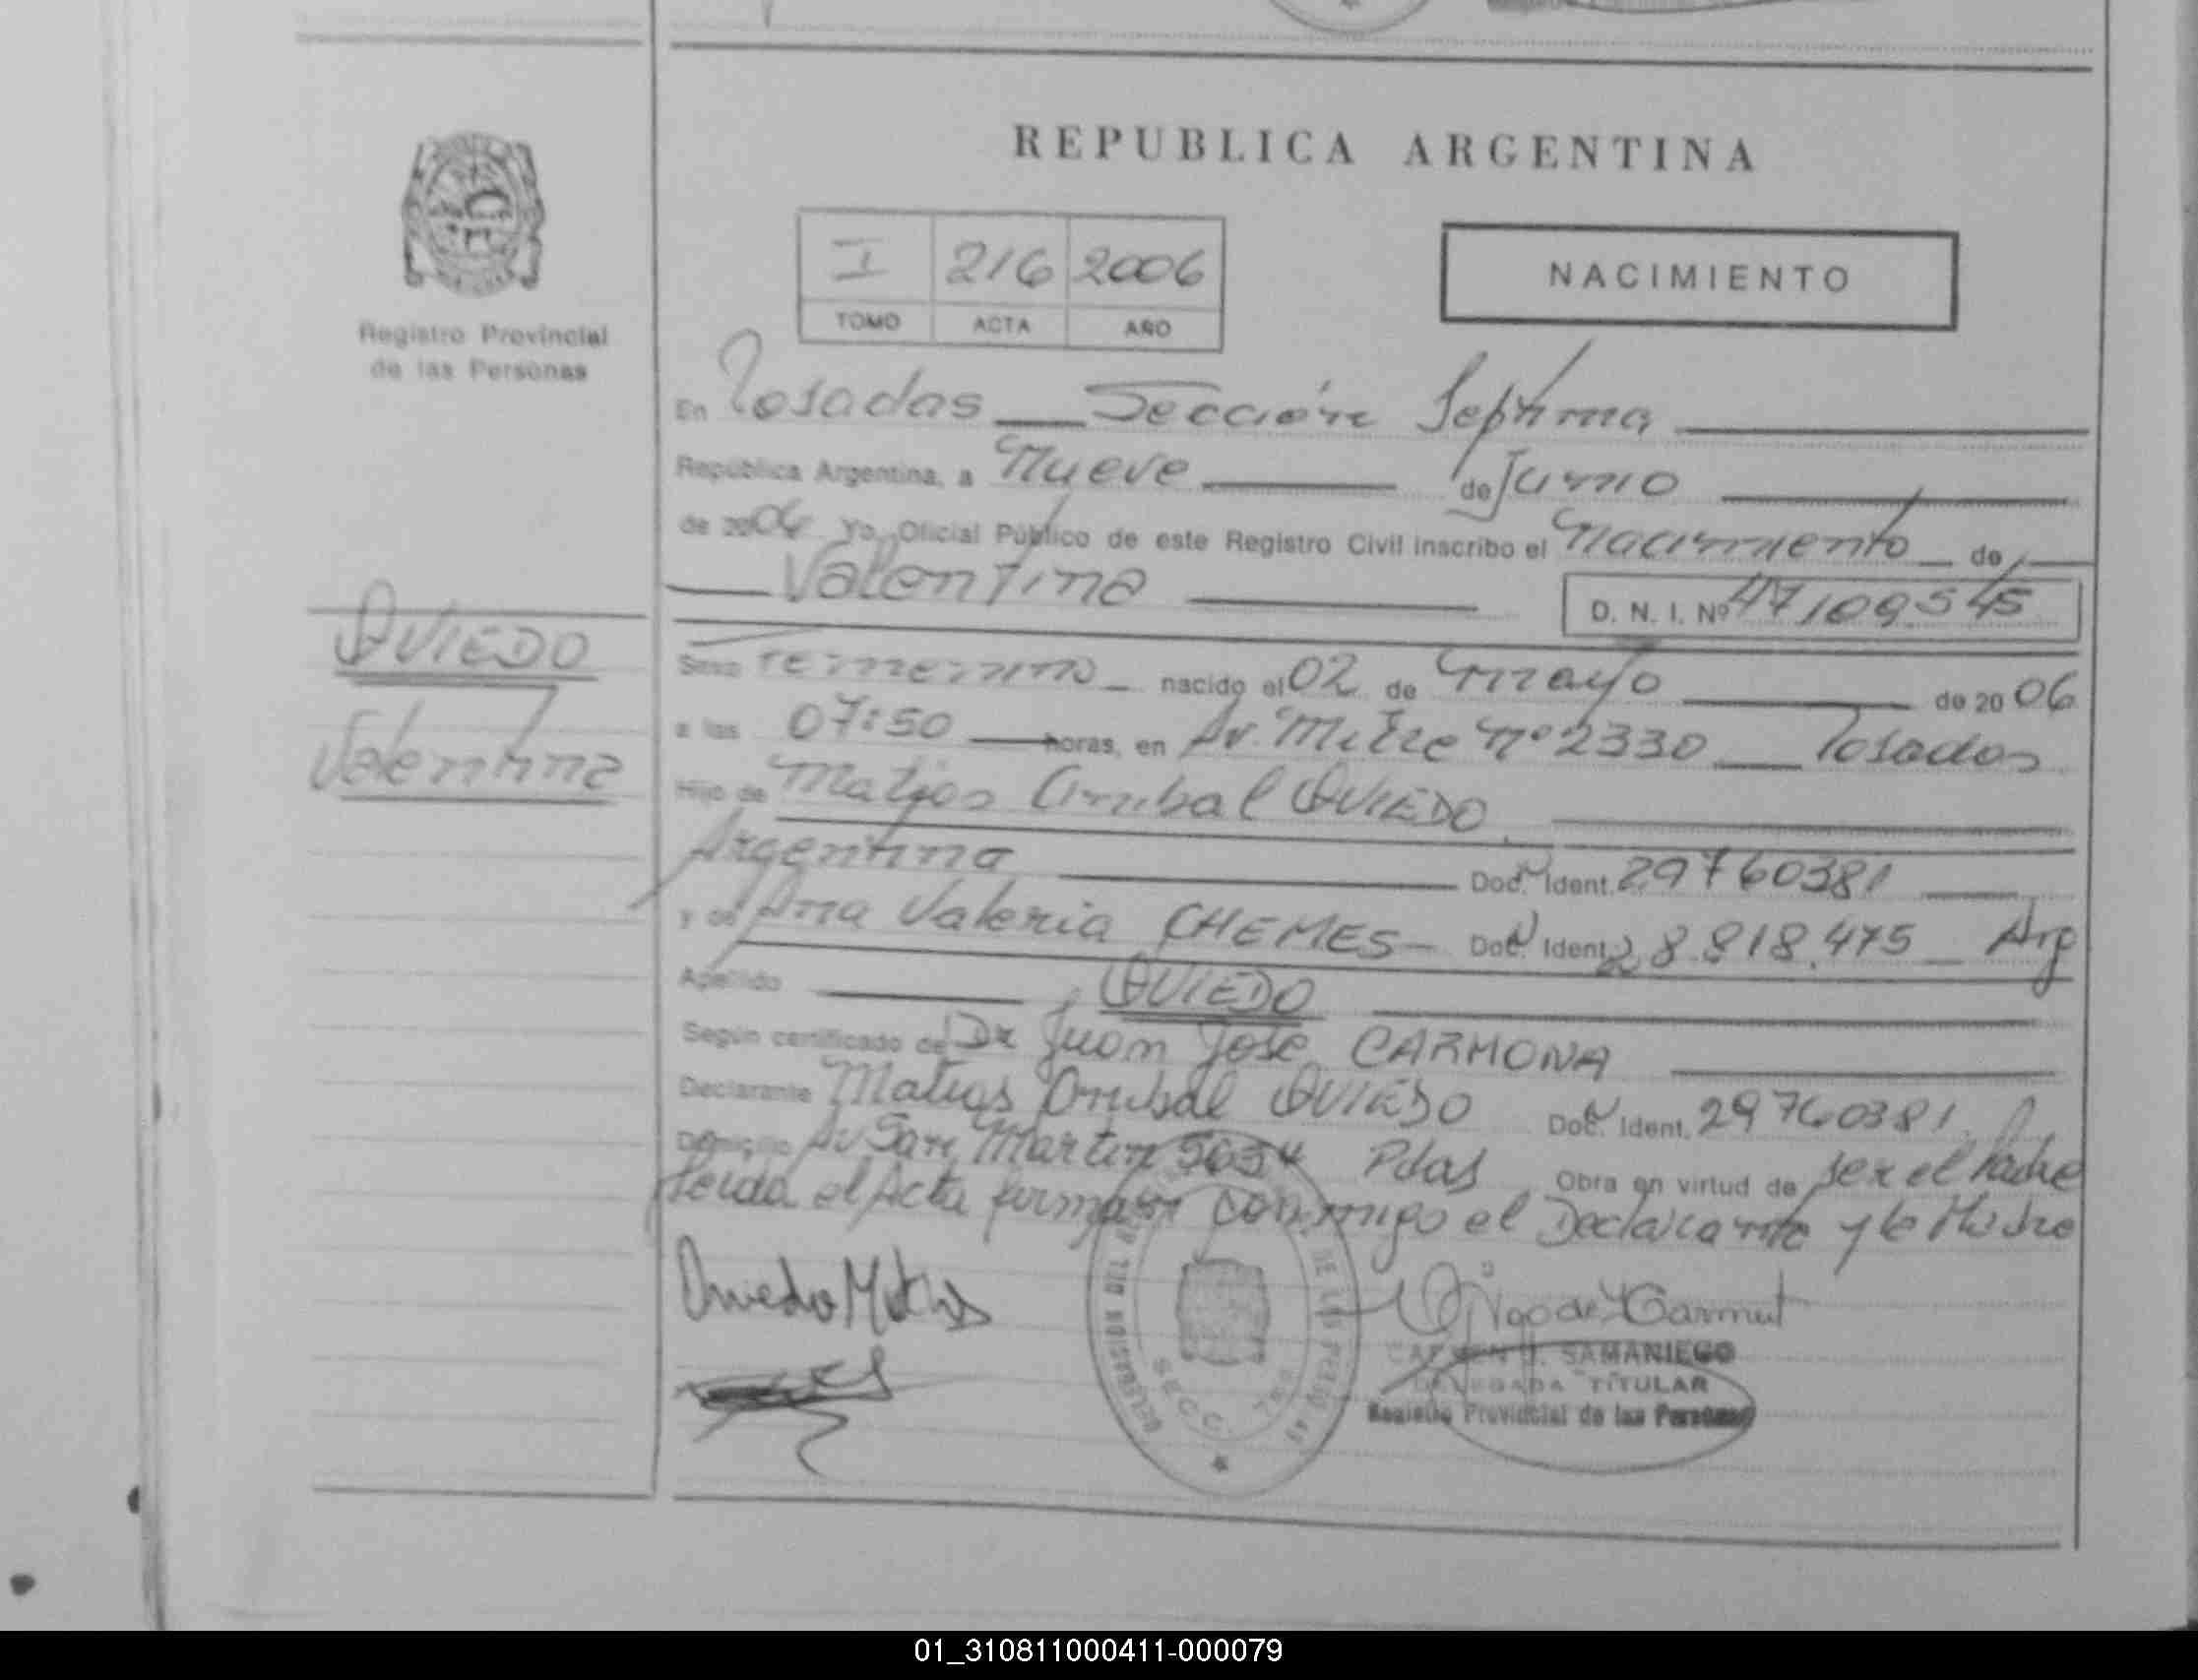 REPUBLICA ARGENTINA
Registro Provincial
de las Personas
I 216 2006
TOMO ACTA AÑO
NACIMIENTO
En Posadas Sección Septima
República Argentina, a Nueve de Junio
de 2006 Yo, Oficial Público de este Registro Civil inscribo el Nacimiento de
Valentina D. N. I. Nº 47109545
OVIEDO
Valentina
Sexo Femenino nacido el 02 de Mayo de 2006
a las 07:50 horas, en Av. Mitre nº 2330 Posadas
Hijo de Matias Anibal OVIEDO
Argentina Doc. Ident. 29760381
y de Ana Valeria CHEMES Doc. Ident. 28.818.475 Arg
Apellido OVIEDO
Según certificado de Dr Juan José CARMONA
Declarante Matias Anibal OVIEDO Doc. Ident. 29760381
Domicilio Av San Martin 5054 Pdas Obra en virtud de ser el Padre
leida el Acta firman conmigo el Declarante y la Madre
Oviedo Matias
CARMEN SAMANIEGO
DELEGADA TITULAR
Registro Provincial de las Personas
DELEGACION DEL DE LAS PERSONAS
SECC
01_310811000411-000079